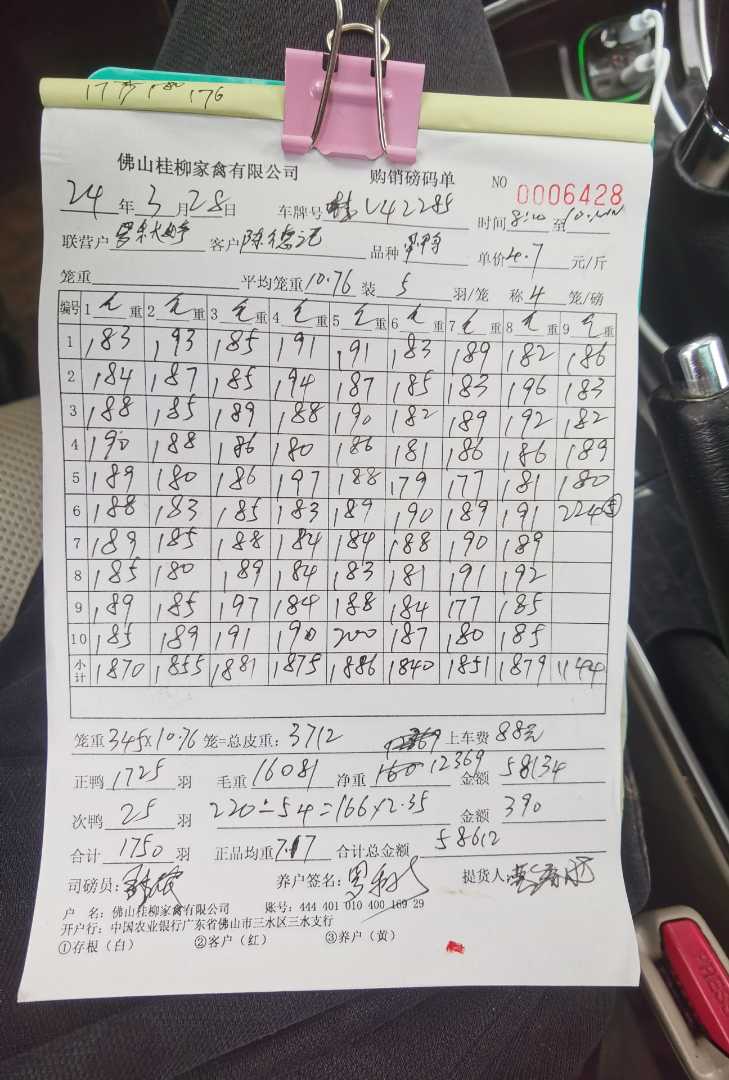 176
佛山桂柳家禽有限公司 购销磅码单 NO 0006428
24年3月28日 车牌号 V42285 时间8:10至
联营户 客户陈德记 品种 单价4.7元/斤
笼重 平均笼重10.76 装5羽/笼 称4笼/磅
编号 1毛重 2毛重 3毛重 4毛重 5毛重 6毛重 7毛重 8毛重 9毛重
1 183 193 185 191 191 183 189 182 186
2 184 187 185 194 187 185 183 196 183
3 188 185 189 188 190 182 189 192 182
4 190 188 186 180 186 181 186 186 189
5 189 180 186 197 188 179 177 181 180
6 188 183 185 183 189 190 189 191 224⑤
7 189 185 188 184 184 188 190 189
8 185 180 189 184 183 181 191 192
9 189 185 197 184 188 184 177 185
10 185 189 191 190 200 187 180 185
小计 1870 1855 1881 1875 1886 1840 1851 1879 1144
笼重345×10.76笼=总皮重:3712 上车费88元
正鸭1725羽 毛重16081 净重12369 金额58134
次鸭25羽 220-54=166×2.35 金额390
合计1750羽 正品均重7.17 合计总金额58612
司磅员: 养户签名: 提货人:
户 名:佛山桂柳家禽有限公司 账号:444 401 010 400 169 29
开户行:中国农业银行广东省佛山市三水区三水支行
①存根(白) ②客户(红) ③养户(黄)
PRESS